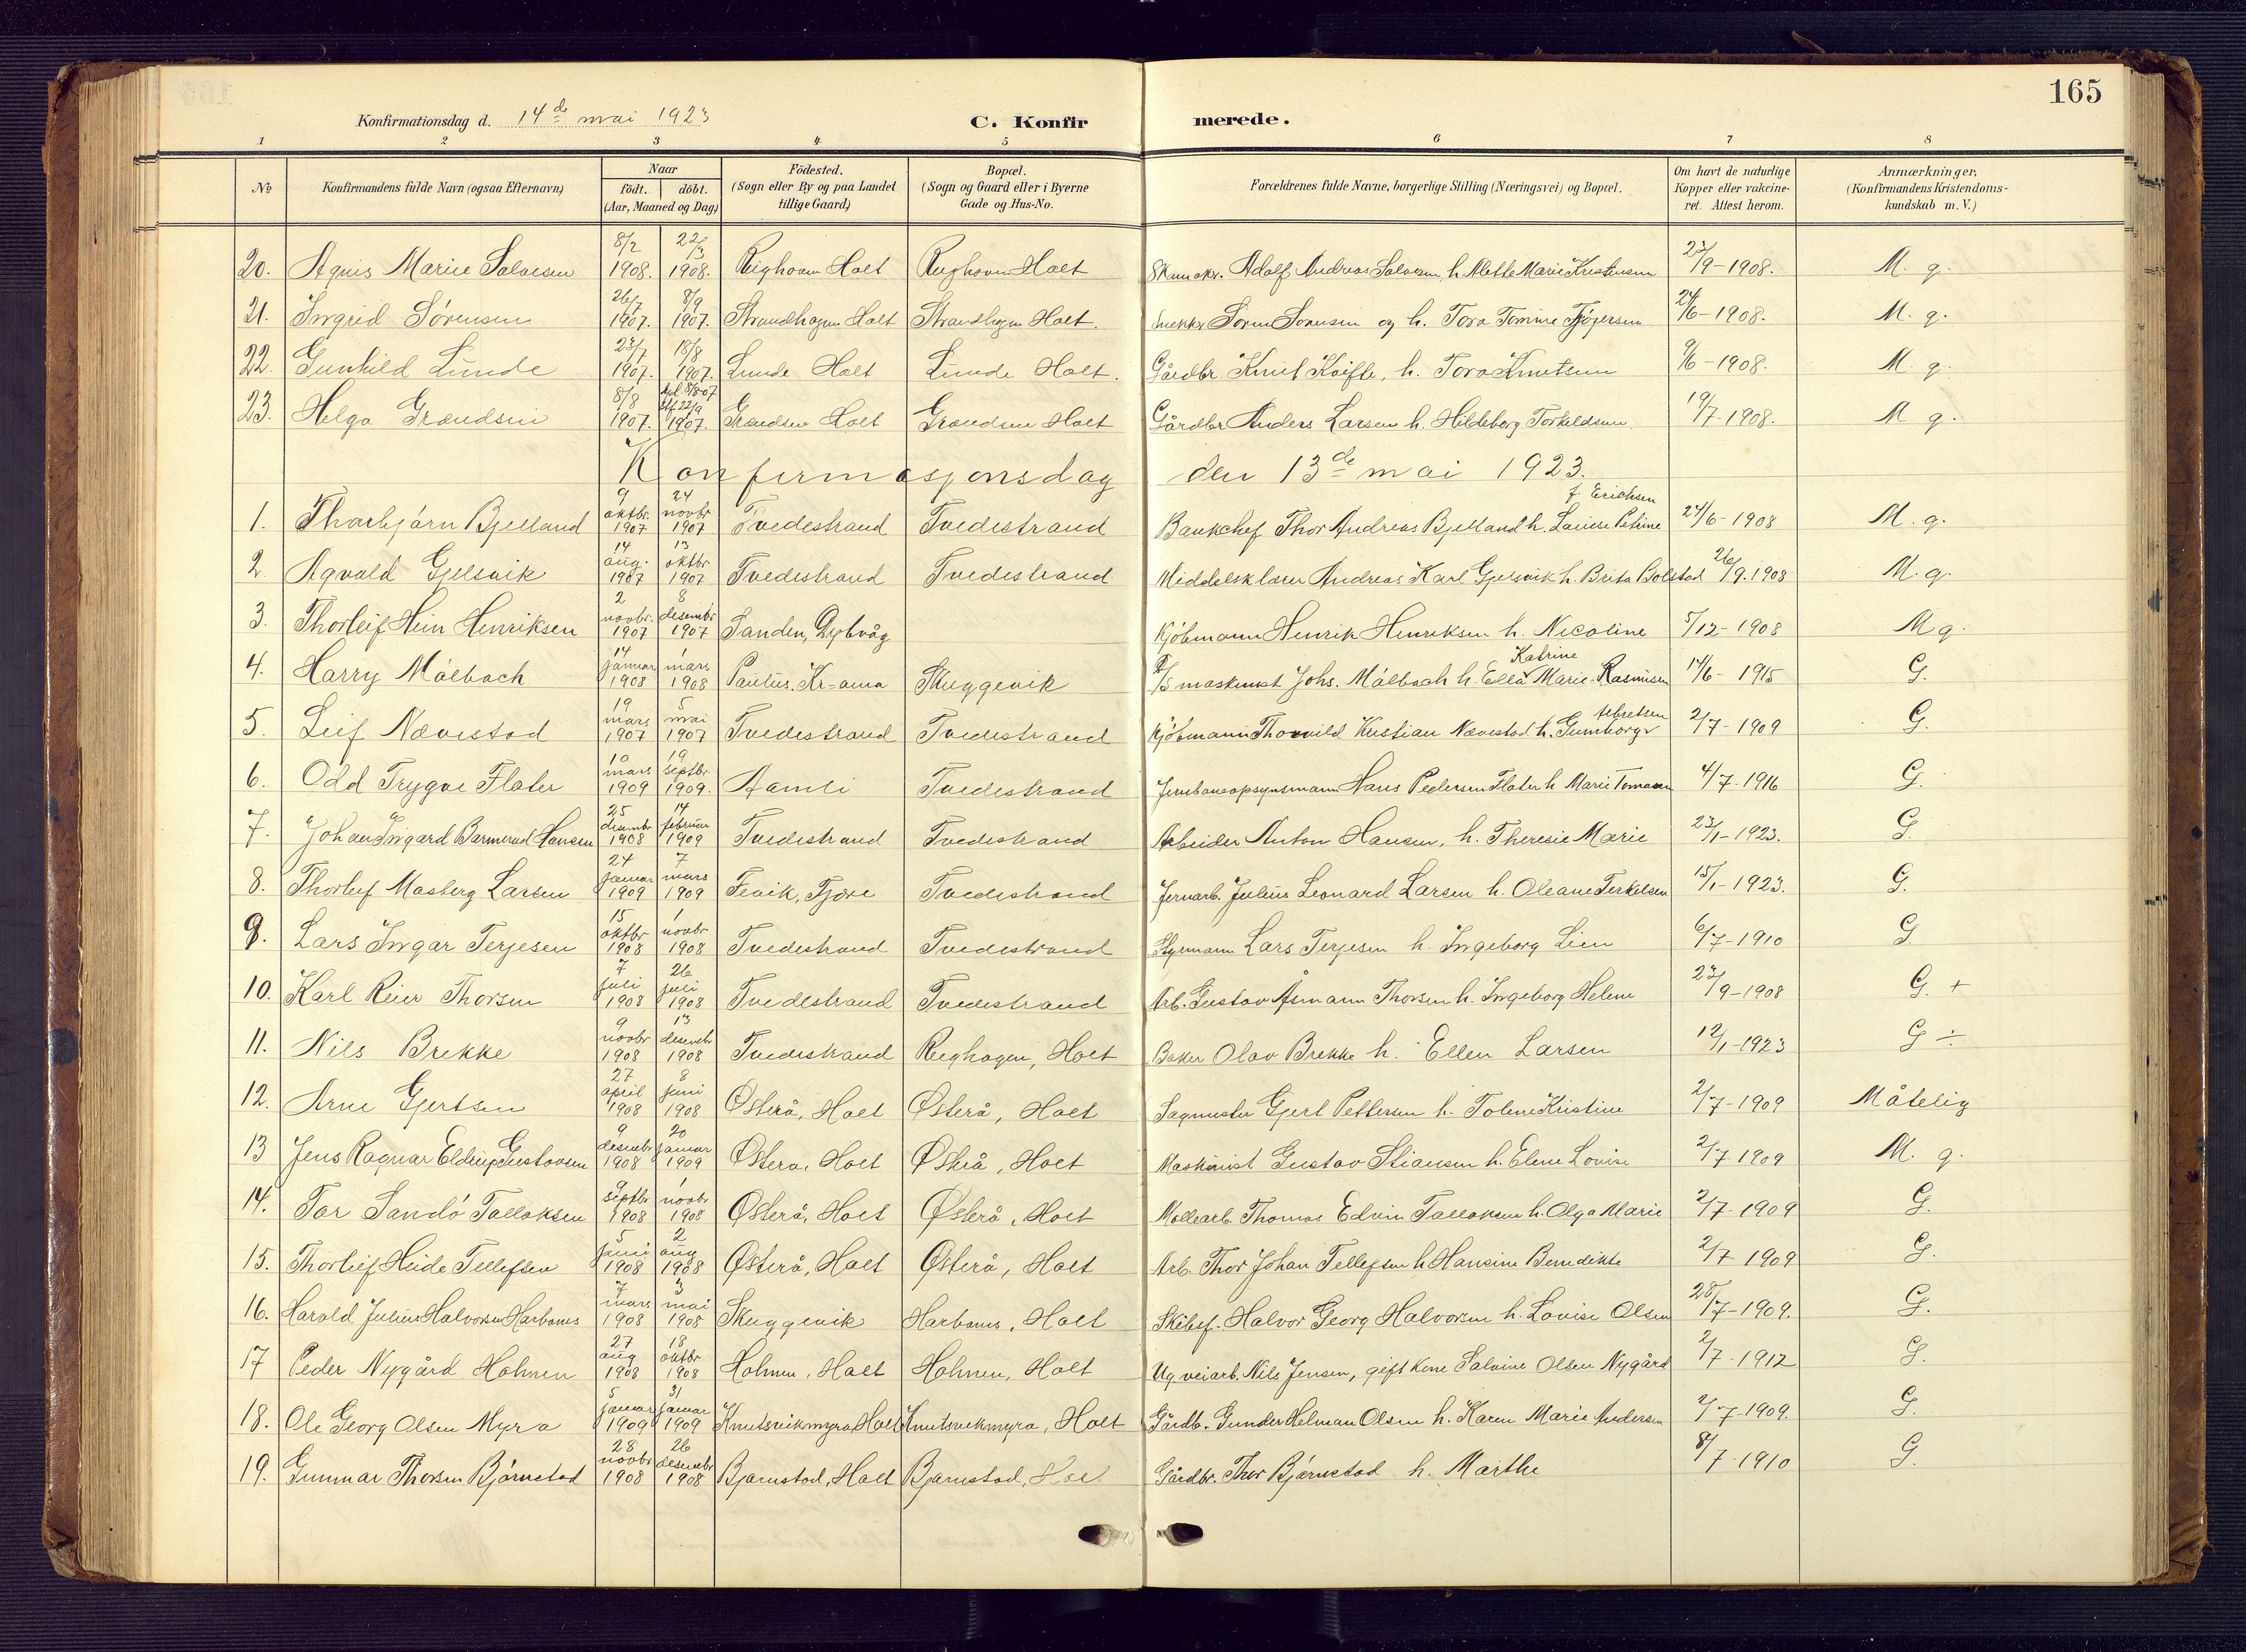 165
Konfirmationsdag d. 14de mai 1923
C. Konfirmerede.
1 2 3 4 5 6 7 8
No
Konfirmandens fulde Navn (ogsaa Efternavn)
Naar
födt. döbt.
(Aar, Maaned og Dag)
Födested.
(Sogn eller By og paa Landet
tillige Gaard)
Bopæl.
(Sogn og Gaard eller i Byerne
Gade og Hus-No.
Forældrenes fulde Navne, borgerlige Stilling (Næringsvei) og Bopæl.
Om havt de naturlige
Kopper eller vakcine-
ret. Attest herom.
Anmærkninger.
(Konfirmandens Kristendoms-
kundskab m. V.)
20. Agnis Marie Salvesen 8/2 1908. 22/3 1908. Holt Holt Adolf Andreas Salvesen h. Alette Marie Kristensen 23/9-1908. M. g.
21. Ingrid Sörensen 26/7 1907. 8/9 1907. Strandhagen Holt Strandhagen Holt. Sören Sörensen og h. Tora Tomine 24/6-1908. M. g.
22. Gunhild Lunde 23/7 1907. 18/8 1907. Lunde Holt Lunde Holt. Gårdbr. Knut h. Tora Knutsen 9/6-1908. M. g.
23. Helga Grændsen 8/8 1907. 22/9 1907. Grændsen Holt Grændsen Holt Gårdbr Anders Larsen h. Hildeborg Torkeldsen 19/7-1908. M g.
Konfirmasjonsdag den 13de mai 1923.
1. Thorbjörn Bjelland 9 oktbr. 1907 24 novbr 1907 Tvedestrand Tvedestrand Bankchef Thor Andreas Bjelland h. Louise Petrine f. Erichsen 24/6-1908 M. g.
2. Agvald Gjelsvik 14 aug. 1907 13 oktbr 1907 Tvedestrand Tvedestrand Middelsklærer Andreas Karl Gjelsvik h. Brita Bolstad 26/9.1908 M. g.
3. Thorleif Hein Henriksen 2 novbr. 1907 8 desembr 1907 Sanden, Dybvåg Kjöbmann Henrik Henriksen h. Nicoline 5/12-1908 M g.
4. Harry Mölbach 14 januar 1908 1 mars 1908 Paulus. Kr-ania Skuggevik D/S maskinist Johs. Mölbach h. Ella Katrine Marie Rasmusen 14/6-1915 G.
5. Leif Nævestad 19 mars 1907 5 mai 1907 Tvedestrand Tvedestrand Kjöbmann Thorvild Kristian Nævestad h. Gunborg 2/7-1909 G.
6. Odd Trygve Flater 10 mars 1909 19 septbr 1909. Aamli Tvedestrand Jernbaneopsynsmann Hans Pedersen Flater h Marie 4/7-1916 G.
7. Johan Ingard Hansen 25 desembr 1908 14 februar 1909 Tvedestrand Tvedestrand Arbeider Anton Hansen, h. Theresie Marie 23/1-1923. G.
8. Thorleif Masberg Larsen 24 januar 1909 7 mars 1909 Fevik, Fjære Tvedestrand Jernarb. Julius Leonard Larsen h. Oleane Terkelsen 15/1-1923. G.
9. Lars Ingar Terjesen 15 oktbr 1908 1 novbr 1908 Tvedestrand Tvedestrand Styrmann Lars Terjesen h. Ingeborg Lien 6/7-1910 G
10. Karl Reier Thorsen 7 juli 1908 26 juli 1908 Tvedestrand Tvedestrand Arb. Gustav Åsmann Thorsen h. Ingeborg Helene 23/9-1908 G. +
11. Nils Brekke 9 novbr 1908 13 desembr 1908 Tvedestrand Holt Baker Olav Brekke h. Ellen Larsen 12/1-1923 G ÷
12. Arne Gjertsen 27 april 1908 8 juni 1908 Østerå, Holt Østerå, Holt Sagmester Gjert Pettersen h. Tolene Kristine 2/7-1909 Måtelig
13 Jens Ragnar Eldrup Gustavsen 9 desembr 1908 20 januar 1909 Østerå, Holt Østerå, Holt Maskinist Gustav Stiansen h. Elene Lovise 2/7-1909 M. g.
14. Tor Sandö Tallaksen 9 septbr 1908 1 novbr 1908 Østerå, Holt Østerå, Holt Möllearb. Thomas Edvin Tallaksen h. Olga Marie 2/7-1909 G.
15. Thorleif Heide Tellefsen 5 juni 1908 2 aug 1908 Østerå, Holt Østerå, Holt Arb. Thor Johan Tellefsen h Hansine Benedikte 2/7 1909 G.
16. Harald Julius Halvorsen Harboms 7 mars 1908 3 mai 1908 Skuggevik Harboms, Holt Skibsf. Halvor Georg Halvorsen h. Lovise Olsen 28/7-1909. G.
17 Peder Nygård Holmen 27 aug 1908 18 oktbr 1908 Holmen, Holt Holmen, Holt Ug. veiarb. Nils Jensen, gift kone Salvine Olsen Nygård 2/7-1912 G.
18. Ole Georg Olsen Myra 5 januar 1909 31 januar 1909 Knutsvikmyra, Holt Knutsvikmyra, Holt Gårdb. Gunder Helman Olsen h. Karen Marie Andersen 2/7-1909. G.
19. Gunnar Thorsen Bjørnstad 28 novbr 1908 26 desembr 1908 Bjørnstad, Holt Bjørnstad, Holt Gårdbr. Thor Bjørnstad h. Marthe 8/7-1910 G.